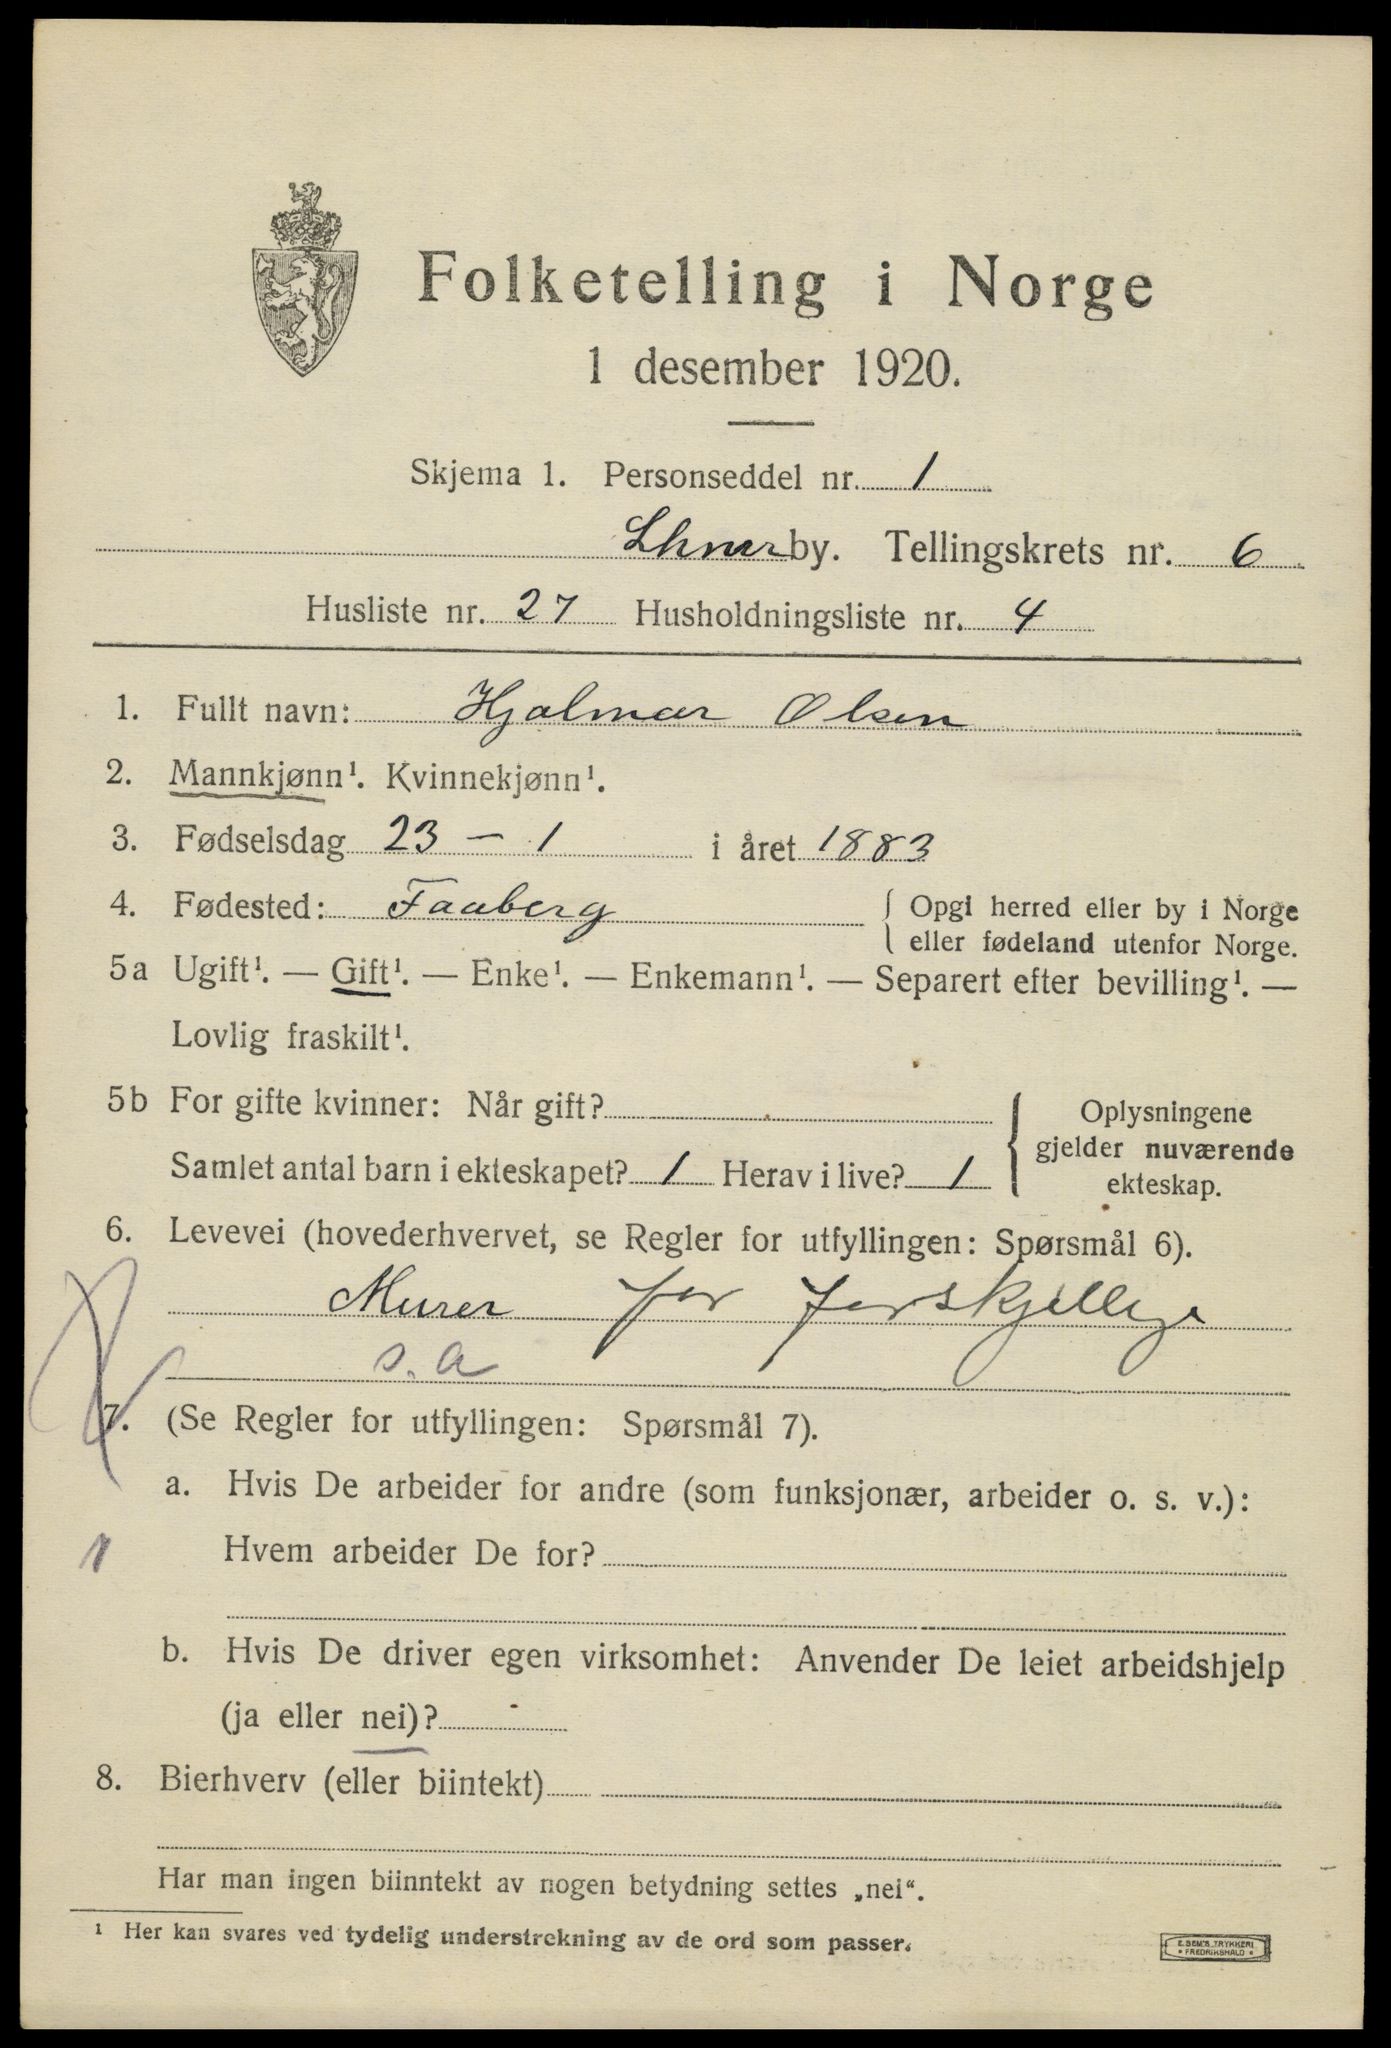 Folketelling i Norge
1 desember 1920.
Skjema 1. Personseddel nr. 1
Lhmr by. Tellingskrets nr. 6
Husliste nr. 27 Husholdningsliste nr. 4
1. Fullt navn: Hjalmar Olsen
2. Mannkjønn¹. Kvinnekjønn¹.
3. Fødselsdag 23 - 1 i året 1883
4. Fødested: Faaberg { Opgi herred eller by i Norge
eller fødeland utenfor Norge.
5a Ugift¹. — Gift¹. — Enke¹. — Enkemann¹. — Separert efter bevilling¹. —
Lovlig fraskilt¹.
5b For gifte kvinner: Når gift? { Oplysningene
gjelder nuværende
Samlet antal barn i ekteskapet? 1 Herav i live? 1 ekteskap.
6. Levevei (hovederhvervet, se Regler for utfyllingen: Spørsmål 6).
Murer for forskjellige
s. a
7. (Se Regler for utfyllingen: Spørsmål 7).
a. Hvis De arbeider for andre (som funksjonær, arbeider o. s. v.):
Hvem arbeider De for?
b. Hvis De driver egen virksomhet: Anvender De leiet arbeidshjelp
(ja eller nei)?
8. Bierhverv (eller biintekt)
Har man ingen biinntekt av nogen betydning settes „nei“.
¹ Her kan svares ved tydelig understrekning av de ord som passer.
E. SEM'S TRYKKERI
• FREDRIKSHALD •